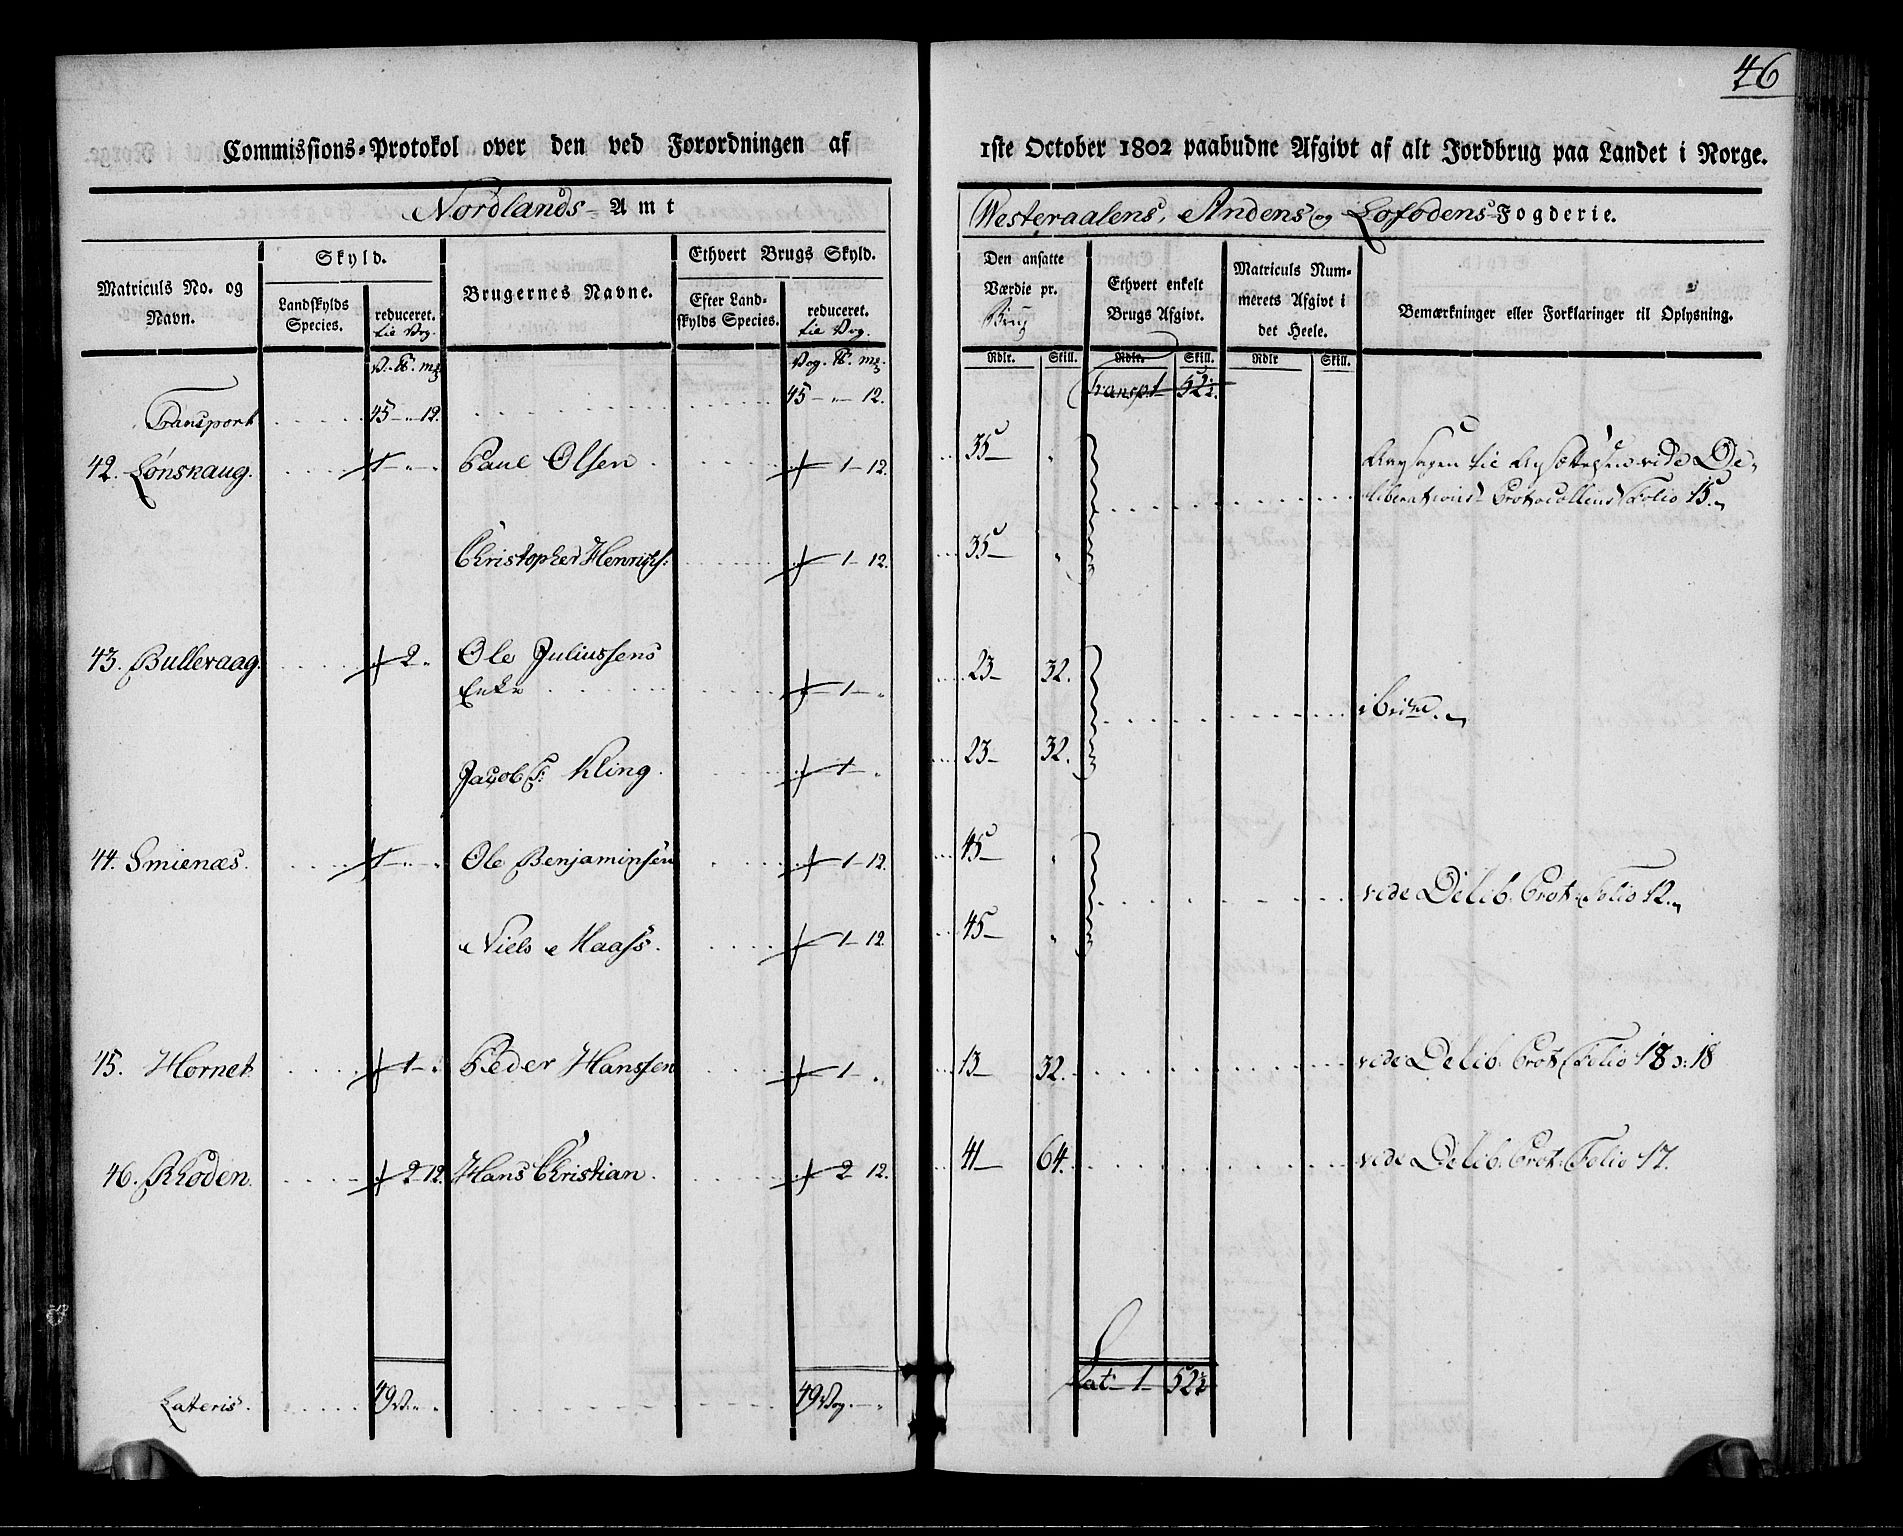 46
Commissions-Protokol over den ved Forordningen af
1ste October 1802 paabudne Afgivt af alt Jordbrug paa Landet i Norge.
Nordlands Amt
Westeraalens, Andens og Lofodens Fogderie.
Matriculs No. og Navn.
Skyld.
Landskylds Species.
reduceret. til Vog.
Brugernes Navne.
Ethvert Brugs Skyld.
Efter Landskylds Species.
reduceret. til Vog.
Den ansatte Værdie pr. Brug
Ethvert enkelt Brugs Afgivt.
Matriculs Nummerets Afgivt i det Heele.
Bemærkninger eller Forklaringer til Oplysning.
Rdlr. Skill. Rdlr. Skill. Rdlr Skill.
Transport 45 - " - 12. 45 - " - 12. Transpt 52½.
42. Lønskaug. 1 - " - Paul Olsen - 1 - 12. 35 - "
vide De-
liberations Protocollens Folio 15.
Christopher Henrichs: - 1 - 12. 35 - "
43. Bullevaag. - 2 " Ole Juliussens
Enke - 1 - " 23 - 32.
ibid.
Jacob Kling. - 1 - " 23 - 32.
44. Smienæs. 1 - " - Ole Benjaminsen - 1 - 12. 45 - "
vide Delib. Prot. Folio 12.
Niels Haass. - 1 - 12. 45 - "
45. Hornet - 1 - " Peder Hanssen - 1 - " 13 - 32. vide Delib. Prot. Folio 18 18
46. Rhoden. - 2 - 12. Hans Christian. - 2 - 12. 41 - 64. vide Delib. Prot. Folio 17.
Lateris. 49 V. - " - 49 Vog. - " Lat 1 - 52½